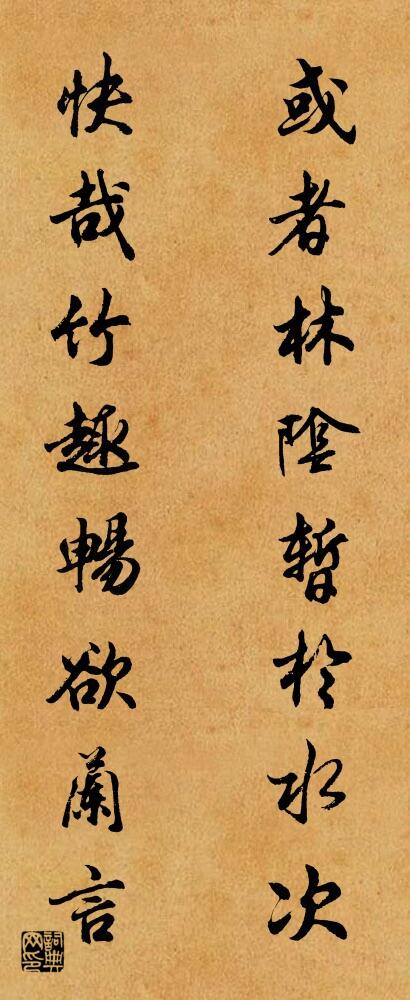 或者林陰暫於水次
快哉竹趣暢欲蘭言
詞典網印